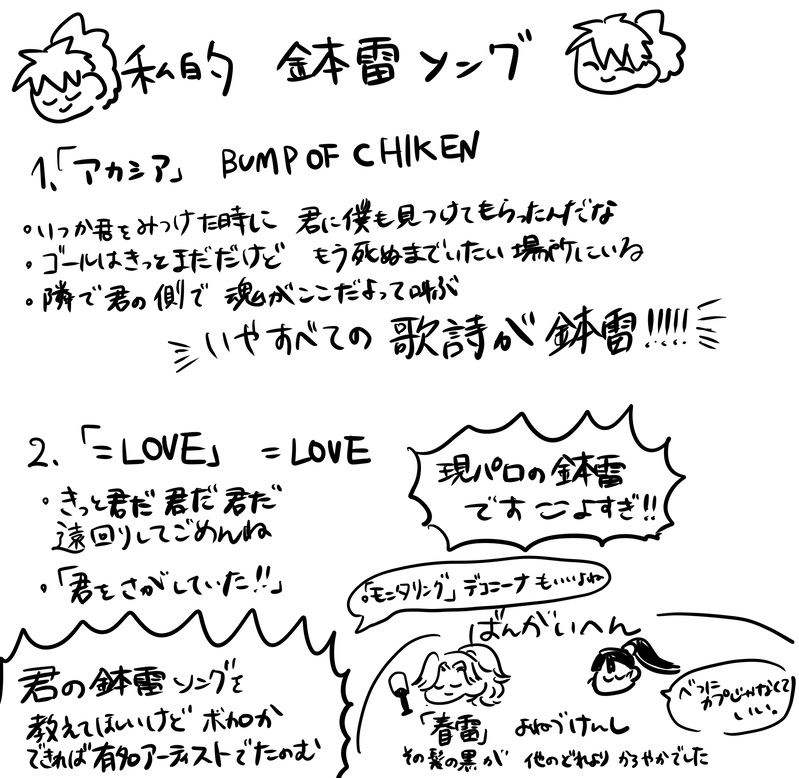 私的 鉢雷ソング
1、「アカシア」 BUMP OF CHIKEN
・いつか君をみつけた時に 君に僕も見つけてもらったんだな
・ゴールはきっとまだだけど もう死ぬまでいたい場所にいる
・隣で君の側で 魂がここだよって叫ぶ
いやすべての 歌詩が 鉢雷!!!!!
2、「=LOVE」 =LOVE
・きっと君だ 君だ 君だ
遠回りしてごめんね
・「君をさがしていた!!」
現パロの鉢雷
です こよすぎ!!
「モニタリング」デコニーナもいいよね
ばんがいへん
君の鉢雷ソングを
教えてほしいけど ボカロか
できれば有名アーティストでたのむ
「春雷」 よねづけんし
その髪の黒が 他のどれより かろやかでした
べつに
カプじゃなくて
いい。